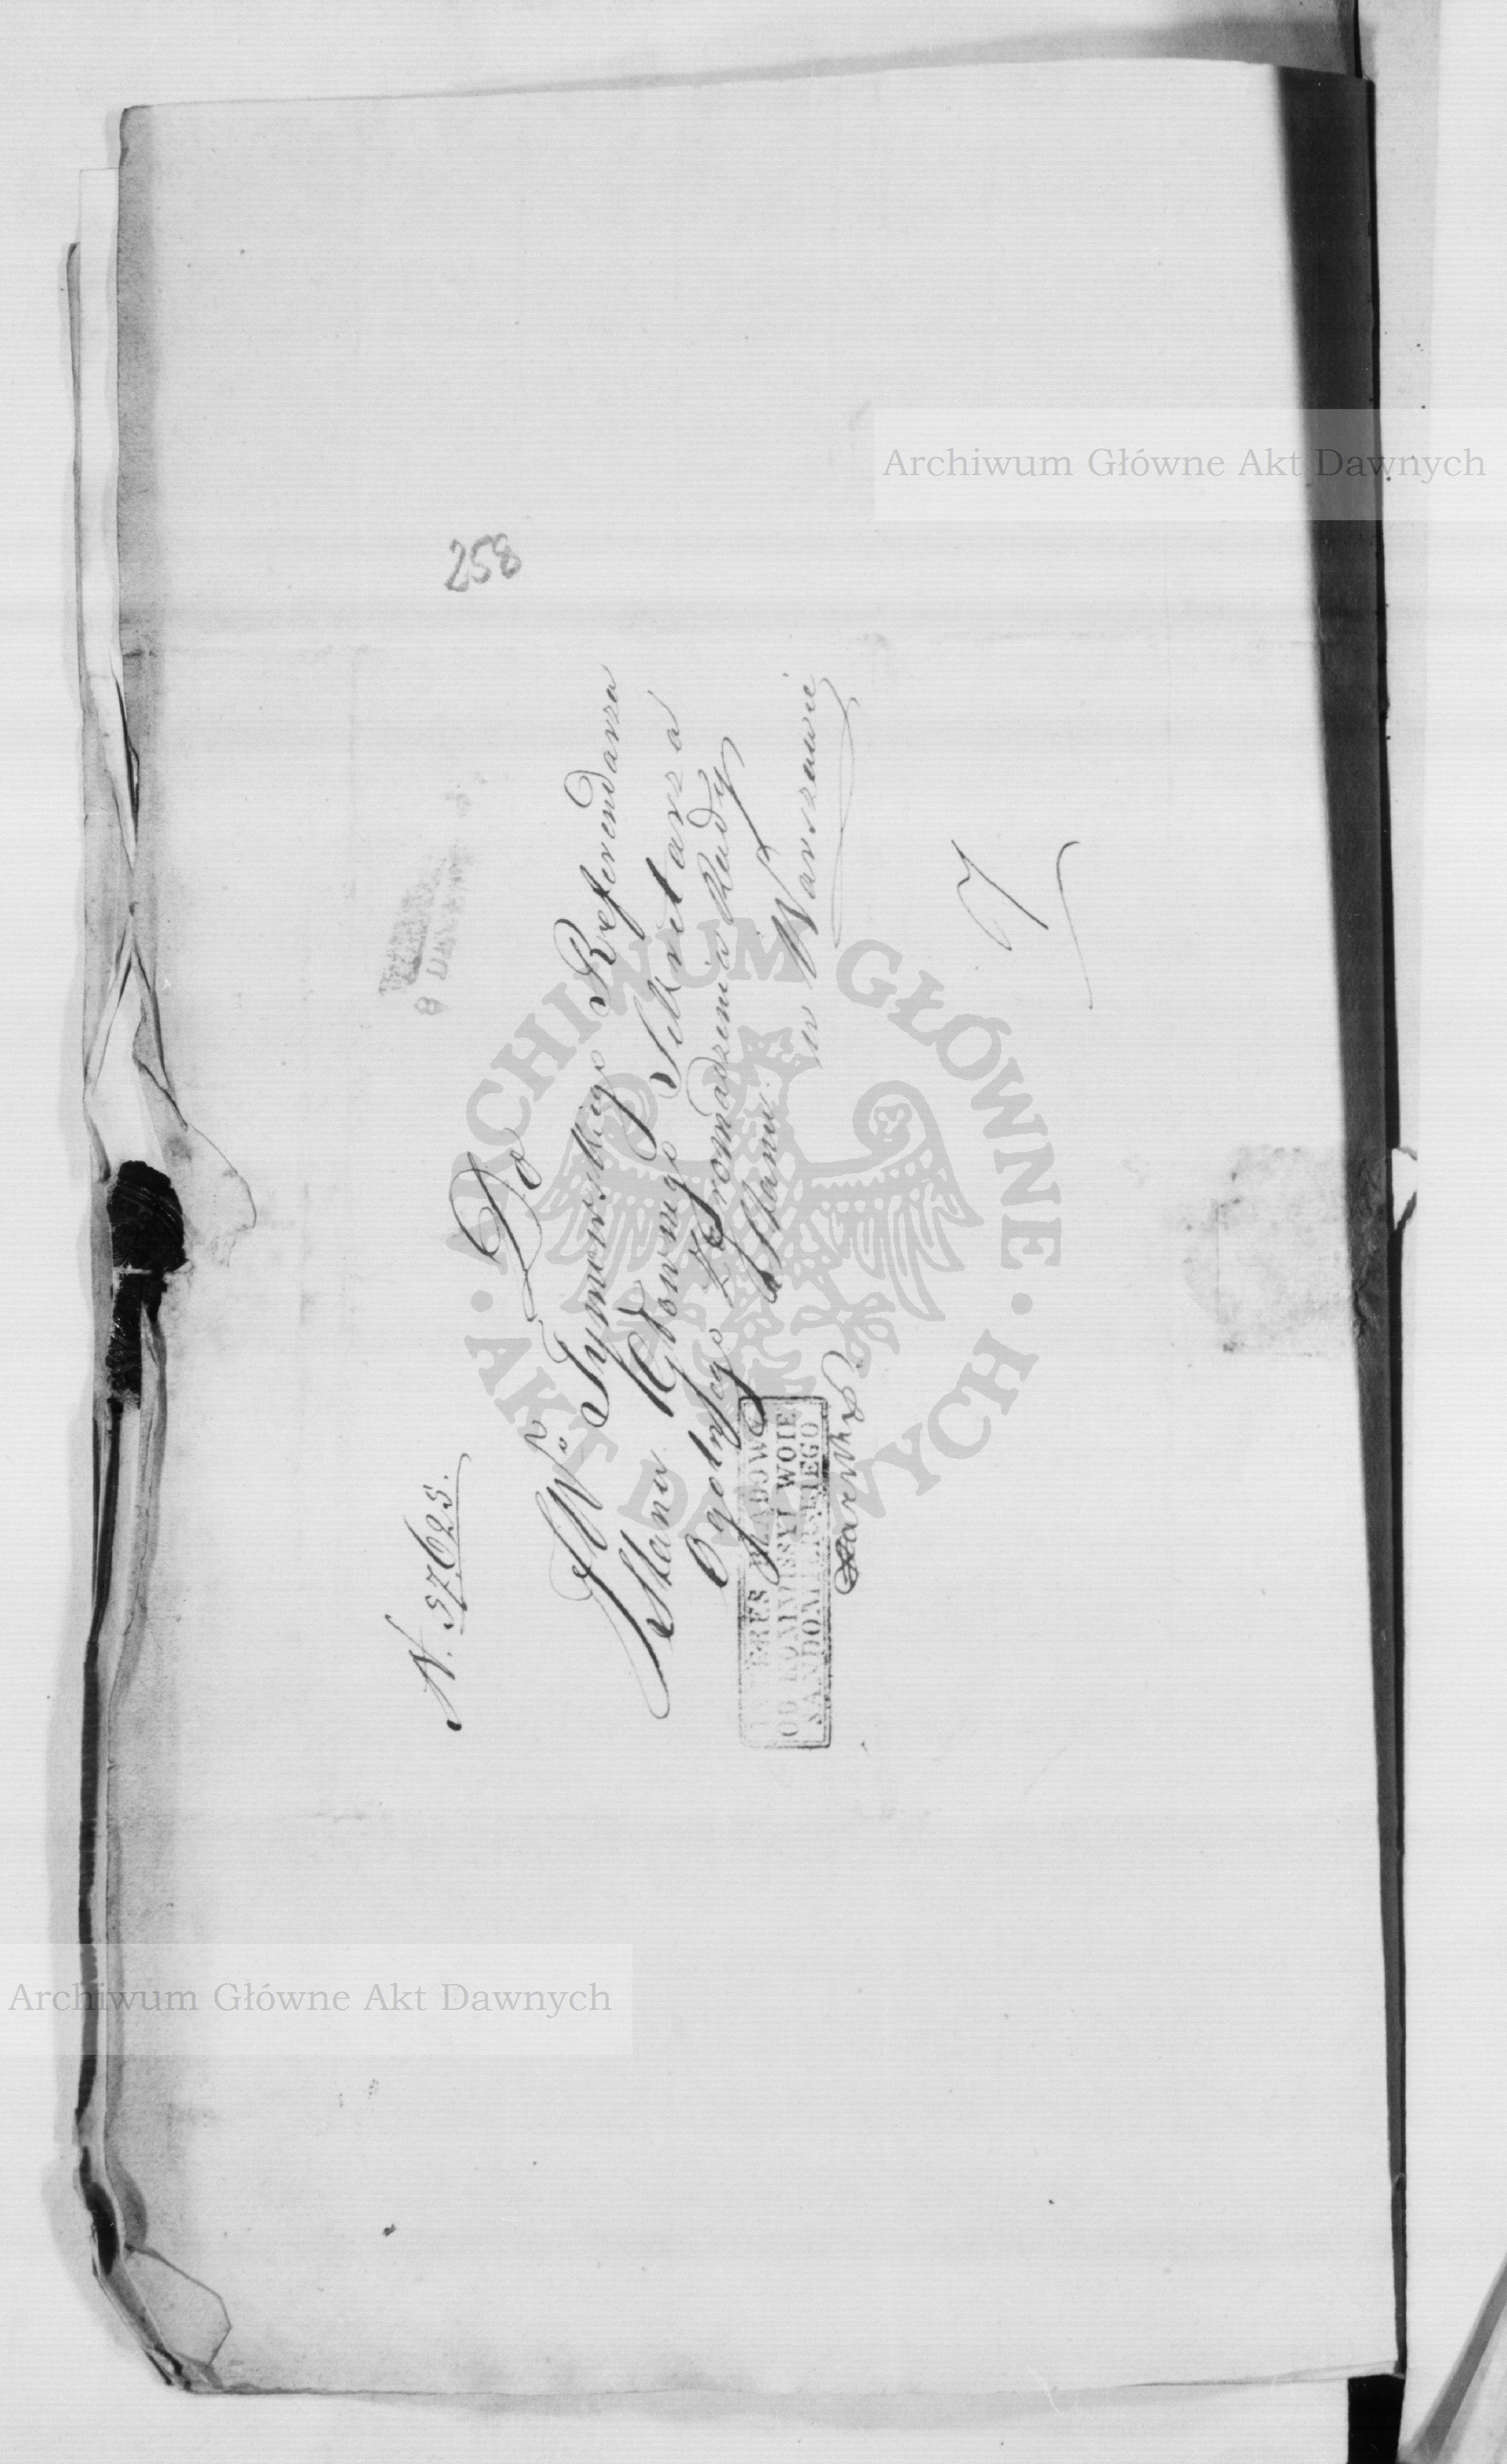 258
N. 37625.
Do
JWo Tymowskiego Referendarza
Stanu Głownego Sekretarza
Ogolnego Zgromadzenia Rady
Stanu
w Warszawie
INTERES RZĄDOWY
OD KOMMISSYI WOIE
SANDOMIERSKIEGO
Archiwum Główne Akt Dawnych
Archiwum Główne Akt Dawnych
ARCHIWUM GŁÓWNE
AKT DAWNYCH